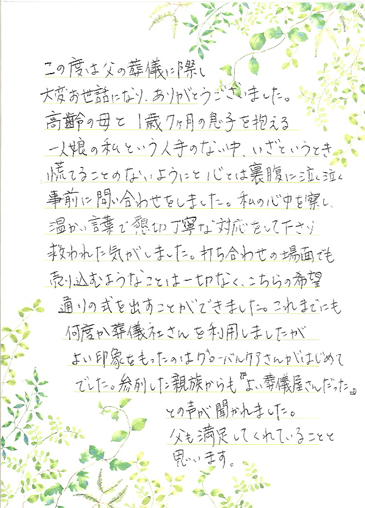 この度は父の葬儀に際し
大変お世話になり、ありがとうございました。
高齢の母と1歳7ヶ月の息子を抱える
一人娘の私という人手のない中、いざというとき
慌てることのないようにと心とは裏腹に泣く泣く
事前に問い合わせをしました。私の心中を察し、
温かい言葉で懇切丁寧な対応をして下さり
救われた気がしました。打ち合わせの場面でも
売り込むようなことは一切なく、こちらの希望
通りの式を出すことができました。これまでにも
何度か葬儀社さんを利用しましたが
よい印象をもったのはグローバルケアさんがはじめて
でした。参列した親族からも『よい葬儀屋さんだった』
との声が聞かれました。
父も満足してくれていることと
思います。